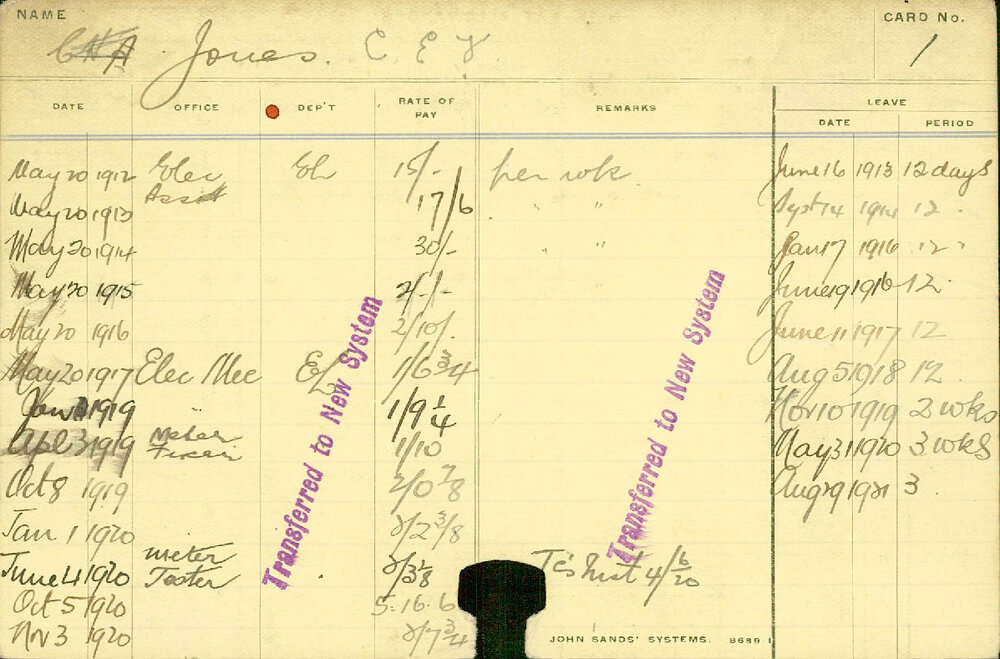 NAME
CARD No.
Jones. C E V
1
DATE OFFICE DEP'T RATE OF PAY REMARKS LEAVE
DATE PERIOD
May 20 1912 Elec Asst El 15/- per wk. June 16 1913 12 days
May 20 1913 17/6 " " Sept 14 1914 12 "
May 20 1914 30/- " " Jan 17 1916 12 "
May 20 1915 2/-/- June 19 1916 12.
May 20 1916 2/10/. June 11 1917 12
May 20 1917 Elec Mec EL 1/6 3/4 Aug 5 1918 12.
Jan 1919 1/9 1/4 Nov 10 1919 2 wks
Apl 3 1919 Meter Fixer 1/10 May 31 1920 3 wks
Oct 8 1919 2/0 7/8 Aug 29 1921 3
Jan 1 1920 2/2 3/8
June 4 1920 meter Tester 2/3 1/8 4/6/20
Oct 5 1920 5.16.6
Nov 3 1920 2/7 3/4
Transferred to New System
Transferred to New System
JOHN SANDS' SYSTEMS. 8689